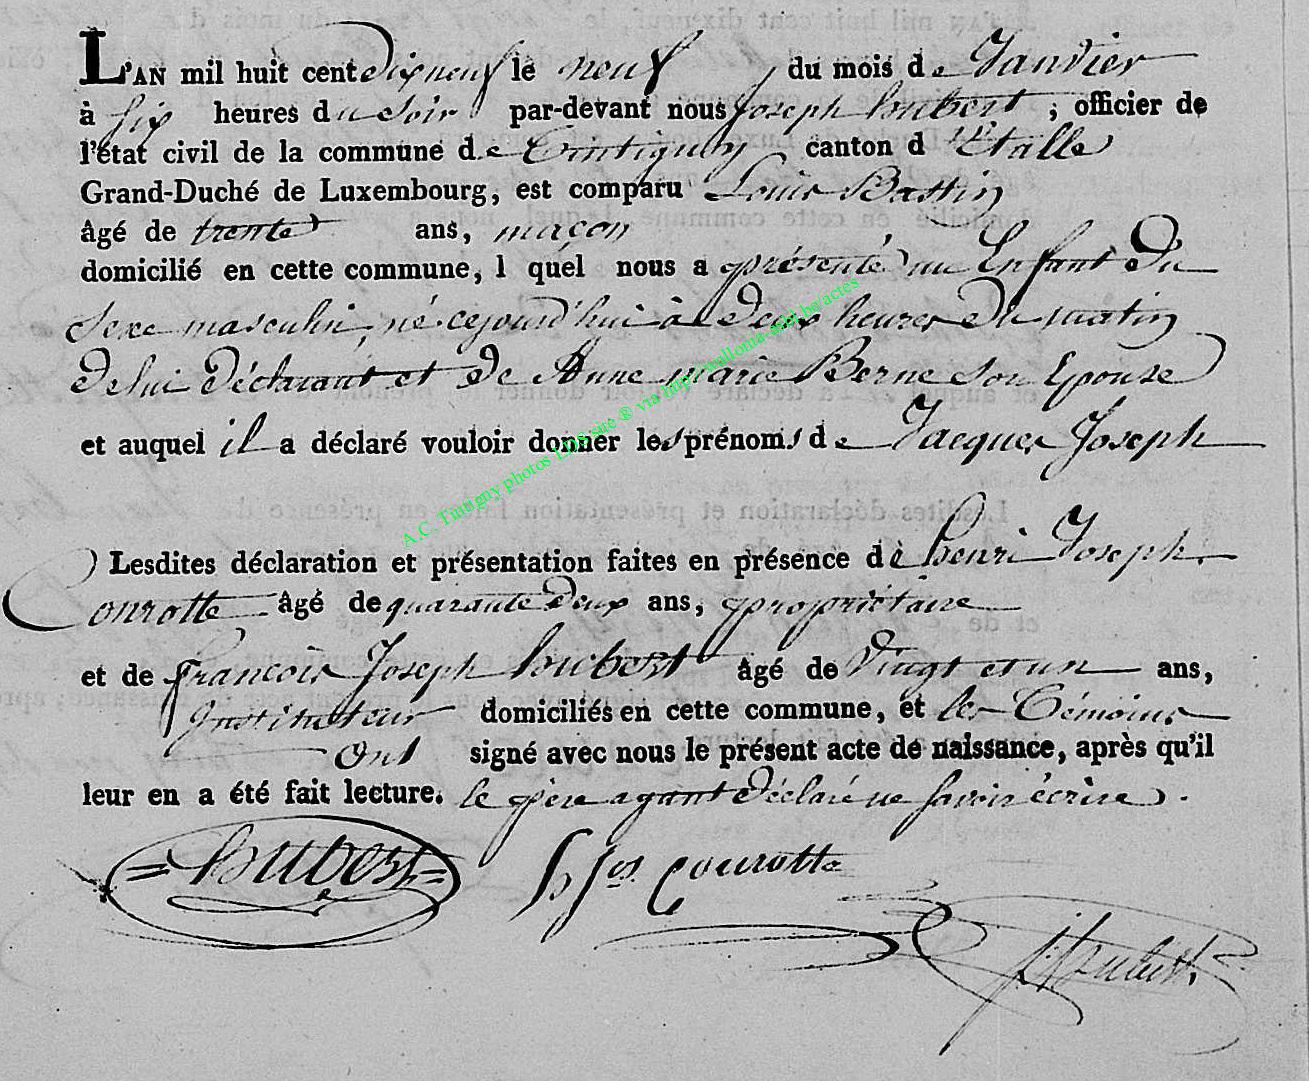 L'AN mil huit cent Dixneuf le neuf du mois de Janvier
à six heures du soir par-devant nous Joseph hubert, officier de
l'état civil de la commune de Tintigny canton d'Etalle
Grand-Duché de Luxembourg, est comparu Louis Bastin
âgé de trente ans, maçon
domicilié en cette commune, l quel nous a présenté un Enfant Du
Sexe masculin, né cejourd'hui à Deux heures Du matin
De lui Déclarant et De Anne marie Berne son Epouse
et auquel il a déclaré vouloir donner les prénoms de Jacques Joseph
Lesdites déclaration et présentation faites en présence de henri Joseph
Conrotte âgé de quarante Deux ans, propriétaire
et de françois Joseph houbert âgé de Vingt et un ans,
Instituteur domiciliés en cette commune, et les Témoins
Ont signé avec nous le présent acte de naissance, après qu'il
leur en a été fait lecture. le père ayant Déclaré ne savoir écrire.
hubert h Jos Conrotte
A.C. Tintigny photos LDS sue ® via http://wallonia-asbl.be/actes